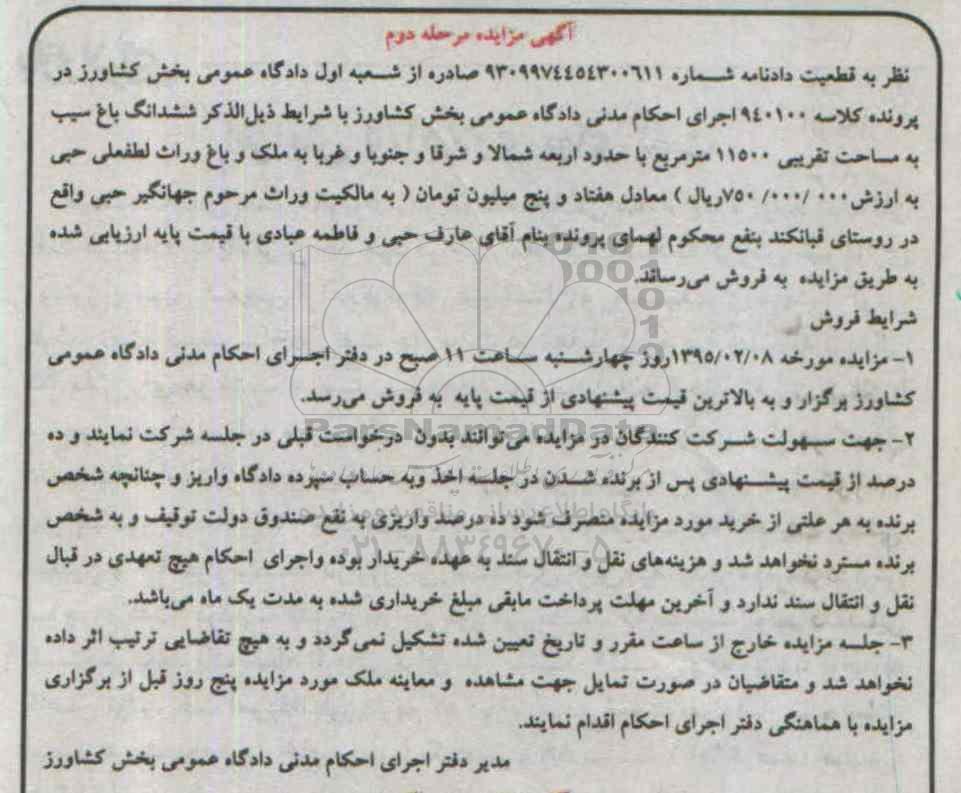 آگهی مزایده مرحله دوم
نظر به قطعیت دادنامه شماره ۹۳۰۹۹۷۴۴۵۴۳۰۰۶۱۱ صادره از شعبه اول دادگاه عمومی بخش کشاورز در
پرونده کلاسه ۹۴۰۱۰۰ اجرای احکام مدنی دادگاه عمومی بخش کشاورز با شرایط ذیل‌الذکر ششدانگ باغ سیب
به مساحت تقریبی ۱۱۵۰۰ مترمربع با حدود اربعه شمالا و شرقا و جنوبا و غربا به ملک و باغ وراث لطفعلی حبی
به ارزش ۷۵۰/۰۰۰/۰۰۰ریال ) معادل هفتاد و پنج میلیون تومان ( به مالکیت وراث مرحوم جهانگیر حبی واقع
در روستای قبانکند بنفع محکوم لهمای پرونده بنام آقای عارف حبی و فاطمه عبادی با قیمت پایه ارزیابی شده
به طریق مزایده به فروش می‌رساند.
شرایط فروش
۱- مزایده مورخه ۱۳۹۵/۰۲/۰۸روز چهارشنبه ساعت ۱۱ صبح در دفتر اجرای احکام مدنی دادگاه عمومی
کشاورز برگزار و به بالاترین قیمت پیشنهادی از قیمت پایه به فروش می‌رسد.
ParsNamadData
۲- جهت سهولت شرکت کنندگان در مزایده می‌توانند بدون درخواست قبلی در جلسه شرکت نمایند و ده
درصد از قیمت پیشنهادی پس از برنده شدن در جلسه اخذ وبه حساب سپرده دادگاه واریز و چنانچه شخص
پایگاه اطلاع رسانی مناقصه و مزایده
برنده به هر علتی از خرید مورد مزایده منصرف شود ده درصد واریزی به نفع صندوق دولت توقیف و به شخص
۰۲۱-۸۸۳۴۹۶۷۰-۵
برنده مسترد نخواهد شد و هزینه‌های نقل و انتقال سند به عهده خریدار بوده واجرای احکام هیچ تعهدی در قبال
نقل و انتقال سند ندارد و آخرین مهلت پرداخت مابقی مبلغ خریداری شده به مدت یک ماه می‌باشد.
۳- جلسه مزایده خارج از ساعت مقرر و تاریخ تعیین شده تشکیل نمی‌گردد و به هیچ تقاضایی ترتیب اثر داده
نخواهد شد و متقاضیان در صورت تمایل جهت مشاهده و معاینه ملک مورد مزایده پنج روز قبل از برگزاری
مزایده با هماهنگی دفتر اجرای احکام اقدام نمایند.
مدیر دفتر اجرای احکام مدنی دادگاه عمومی بخش کشاورز